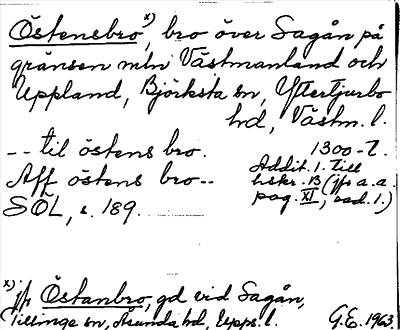 Östensbro x), bro över Sagån på
gränsen mln Västmanland och
Uppland, Björksta sn, Yttertjurbo
hd, Västm. l.
-- til östens bro. 1300-t.
Aff östens bro-- Addit. 1. till
hskr. B (jfr a.a.
SOL, s. 189. pag. XI, rad. 1.)
x) jfr Östanbro, gd vid Sagån,
Tillinge sn, Åsunda hd, Upps. l. G.E. 1963.